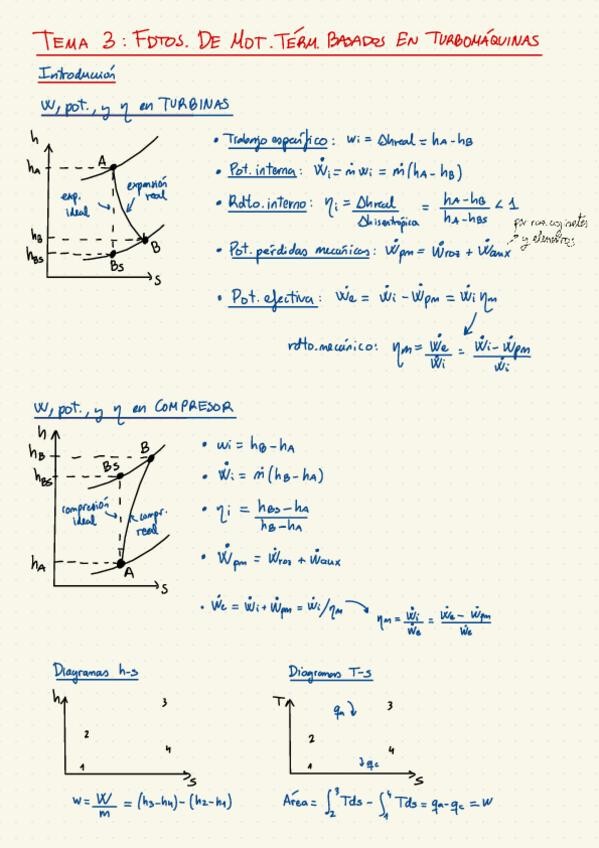 TEMA 3: FDTOS. DE MOT. TÉRM. BASADOS EN TURBOMÁQUINAS
Introducción
W, pot., y η en TURBINAS
h
hA
hB
hBs
A
B
Bs
s
exp. ideal
expansión real
• Trabajo específico: wi = Δhreal = hA - hB
• Pot. interna: Ẇi = ṁ wi = ṁ(hA - hB)
• Rdto. interno: ηi = Δhreal / Δhisentrópica = (hA - hB) / (hA - hBs) < 1
• Pot. pérdidas mecánicas: Ẇpm = Ẇroz + Ẇaux
por roz. cojinetes
y elementos
• Pot. efectiva: Ẇe = Ẇi - Ẇpm = Ẇi ηm
rdto. mecánico: ηm = Ẇe / Ẇi = (Ẇi - Ẇpm) / Ẇi
W, pot., y η en COMPRESOR
h
hB
hBs
hA
Bs
B
A
s
compresión ideal
compr. real
• wi = hB - hA
• Ẇi = ṁ(hB - hA)
• ηi = (hBs - hA) / (hB - hA)
• Ẇpm = Ẇroz + Ẇaux
• Ẇe = Ẇi + Ẇpm = Ẇi/ηm
ηm = Ẇi / Ẇe = (Ẇe - Ẇpm) / Ẇe
Diagramas h-s
h
3
2
4
1
s
w = W / m = (h3 - h4) - (h2 - h1)
Diagramas T-s
T
qa
3
2
4
1
qc
s
Área = ∫₂³ Tds - ∫₁⁴ Tds = qa - qc = w